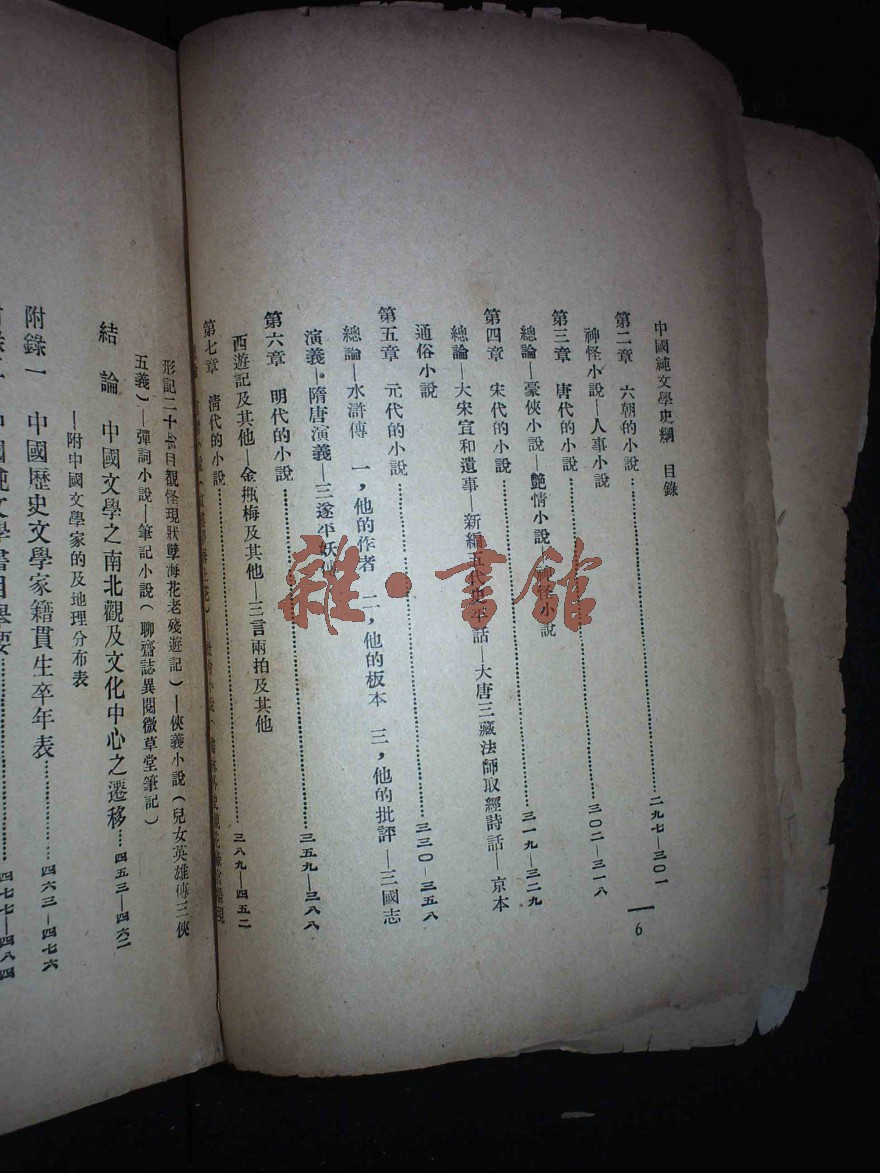 中國純文學史綱 目錄
第二章 六朝的小說……二九七—三〇一
神怪小說—人事小說
第三章 唐代的小說……三〇二—三一八
總論—豪俠小說—艷情小說—神怪小說
第四章 宋代的小說……三一九—三二九
總論—大宋宣和遺事—新編五代史平話—大唐三藏法師取經詩話—京本
通俗小說
第五章 元代的小說……三三〇—三五八
總論—水滸傳 一，他的作者 二，他的板本 三，他的批評—三國志
演義—隋唐演義—三遂平妖傳
第六章 明代的小說……三五九—三八八
西遊記及其他—金瓶梅及其他—三言兩拍及其他
第七章 清代的小說……三八九—四五二
形記二十年目覩怪現狀孽海花老殘遊記）—俠義小說（兒女英雄傳三俠
五義）—彈詞小說—筆記小說（聊齋誌異閱微草堂筆記）
結論 中國文學之南北觀及文化中心之遷移……四五三—四六二
—附中國文學家的及地理分布表
附錄一 中國歷史文學家籍貫生卒年表……四六三—四七六
中國純文學書目舉要……四七七—四八四
6
雜·書館